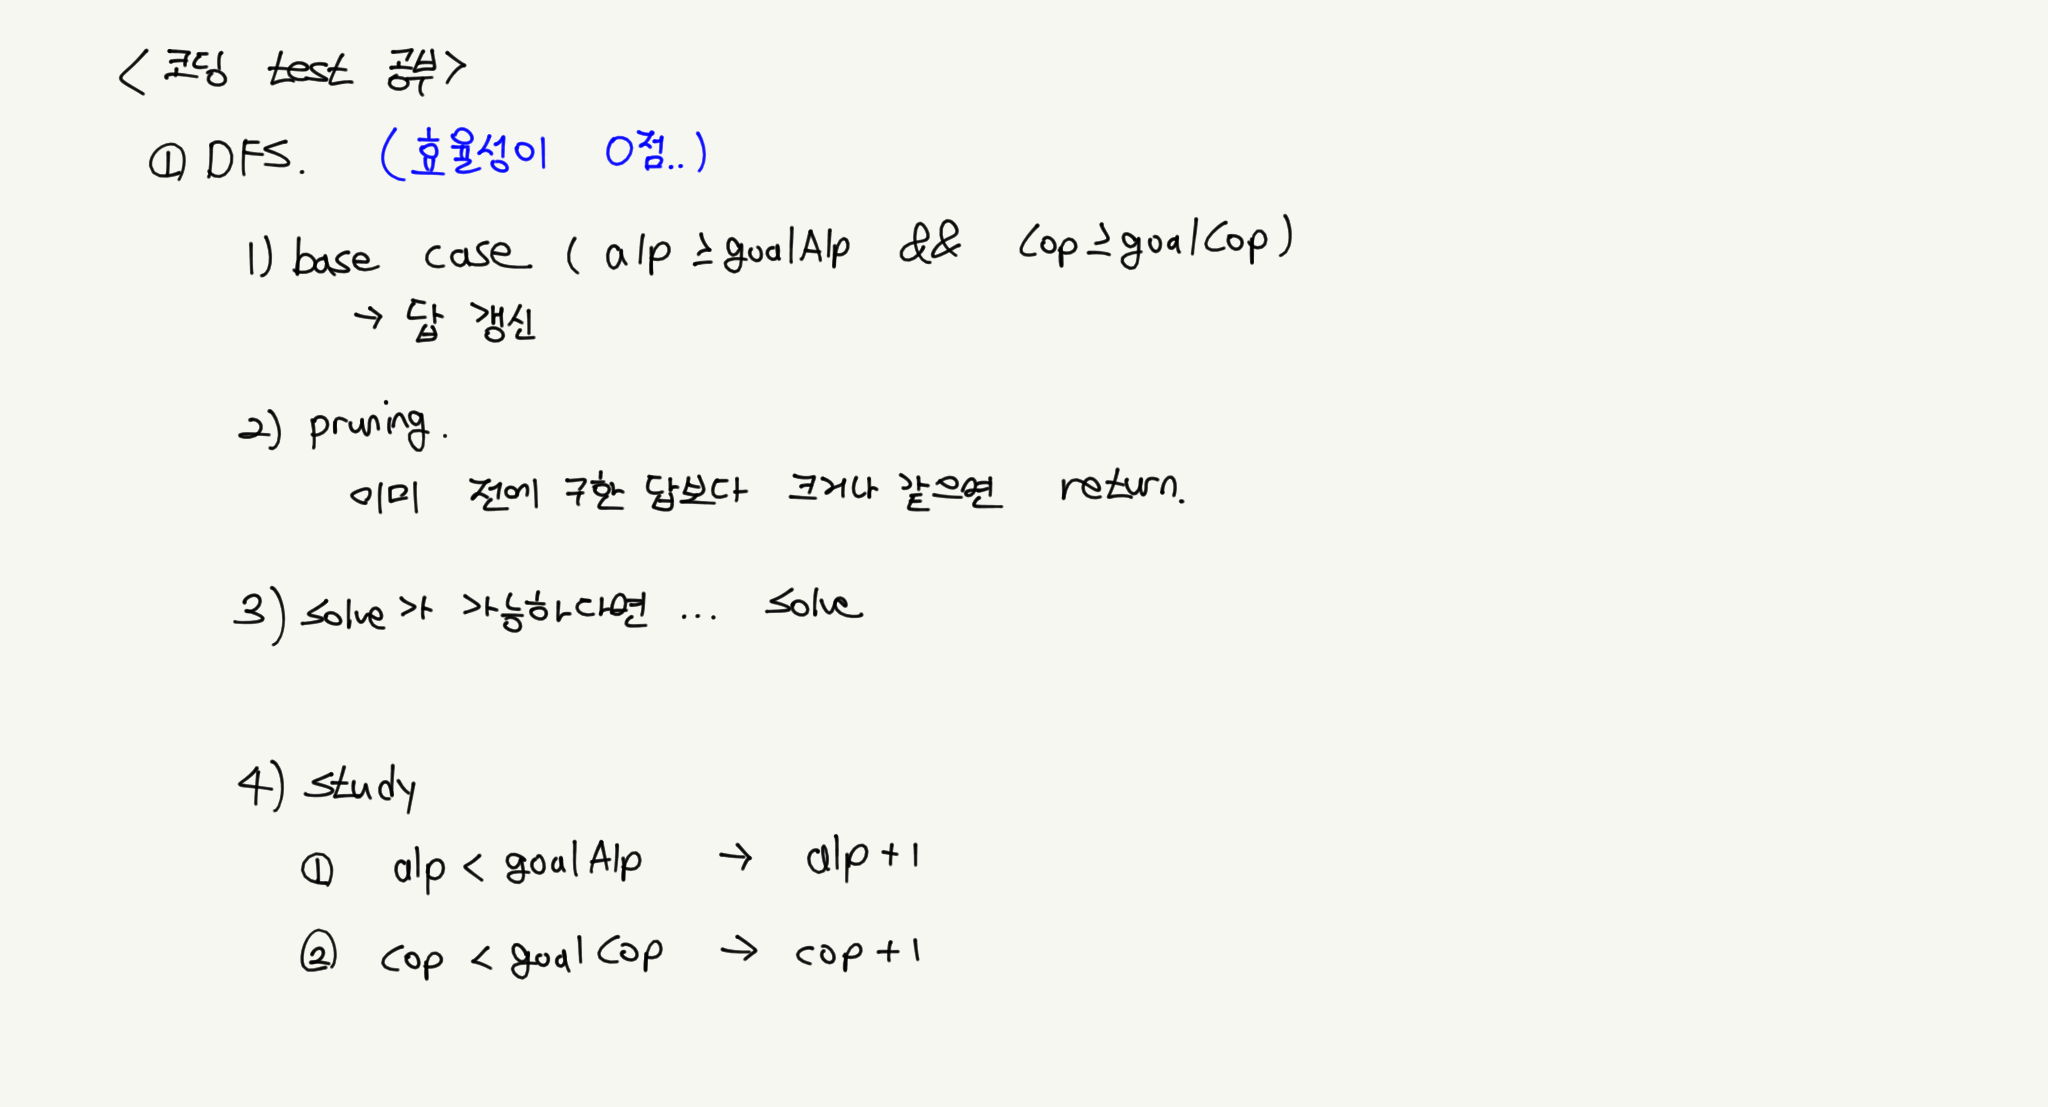 <코딩 test 공부>
① DFS. (효율성이 0점..)
1) base case ( alp ≥ goalAlp && cop ≥ goalCop )
→ 답 갱신
2) pruning.
이미 전에 구한 답보다 크거나 같으면 return.
3) solve가 가능하다면 ... solve
4) study
① alp < goalAlp → alp+1
② cop < goalCop → cop+1